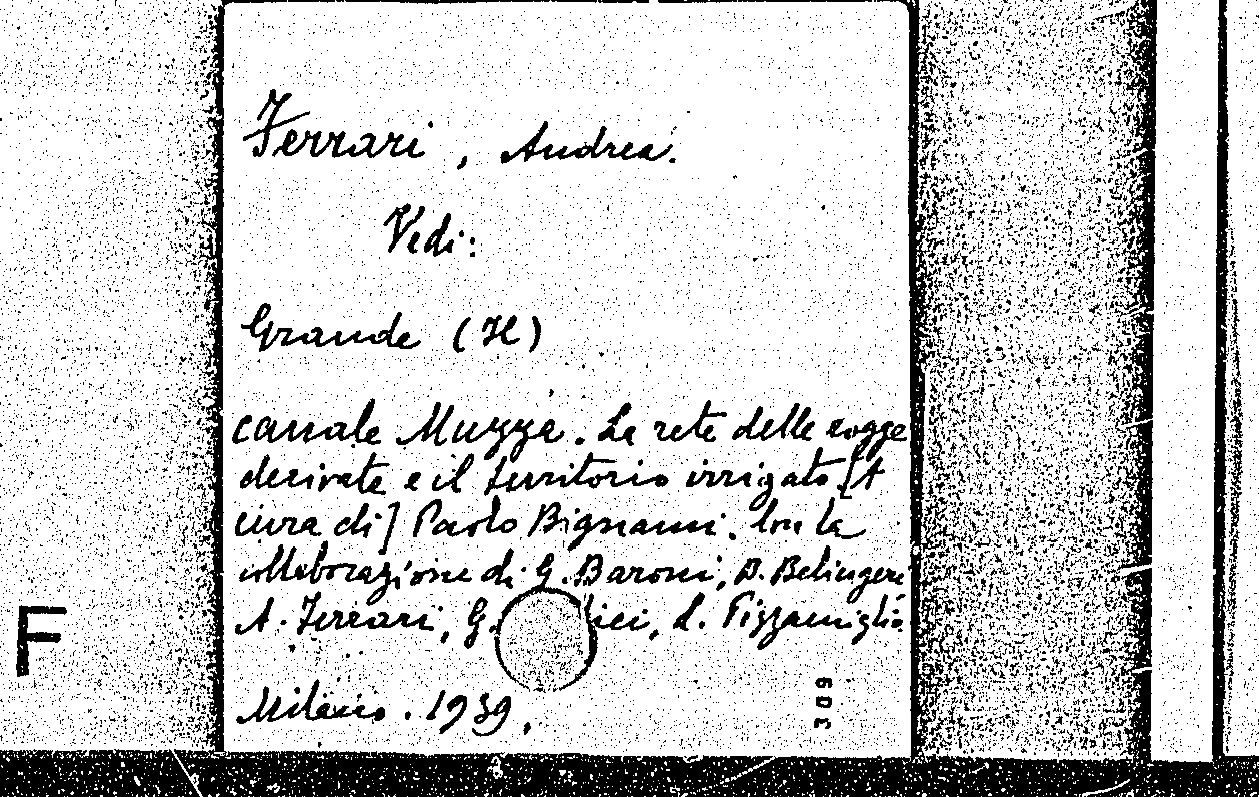 Ferrari, Andrea.
Vedi:
Grande (Il)
canale Muzza. La rete delle rogge
derivate e il territorio irrigato [A
cura di] Paolo Bignami. Con la
collaborazione di G. Baroni, B. Belingeri
A. Ferrari, G. lici, L. Pizzamiglio.
Milano. 1939.
309
F